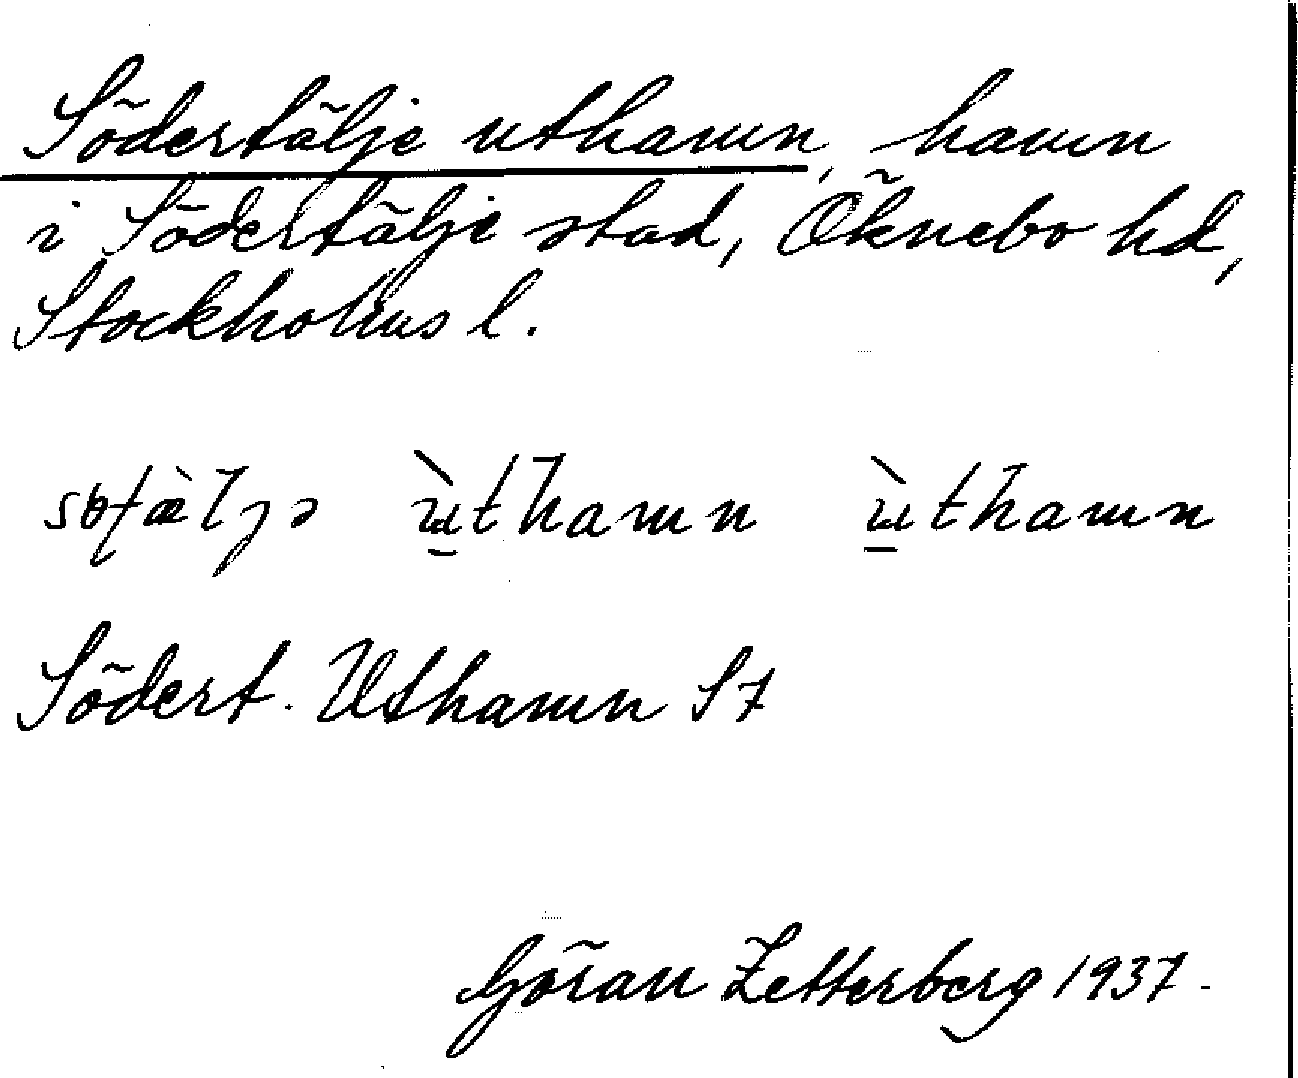 Södertälje uthamn, hamn
i Södertälje stad, Öknebo hd,
Stockholms l.
ùthamn ùthamn
Södert. Uthamn S7
Göran Zetterberg 1937.